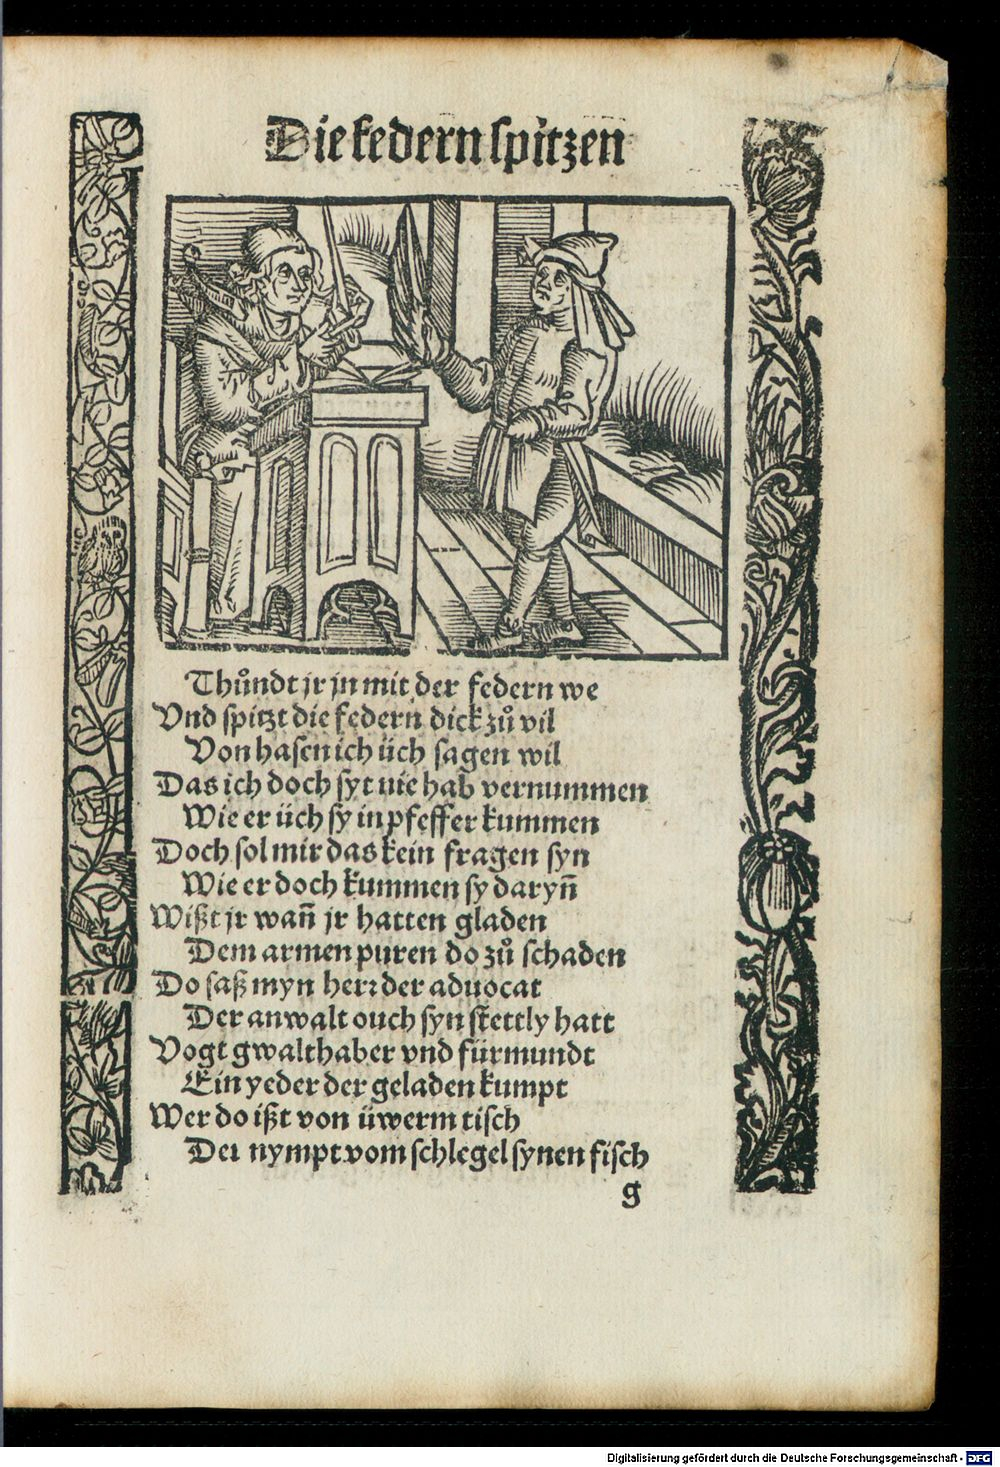 Die federn spitzen
Thůndt jr jn mit der federn we
Vnd spitzt die federn dick zů vil
Von hasen ich üch sagen wil
Das ich doch syt nie hab vernummen
Wie er üch sy in pfeffer kummen
Doch sol mir das kein fragen syn
Wie er doch kummen sy daryn̄
Wißt jr wan̄ jr hatten gladen
Dem armen puren do zů schaden
Do saß myn herꝛ der aduocat
Der anwalt ouch syn stettly hatt
Vogt gwalthaber vnd fürmundt
Ein yeder der geladen kumpt
Wer do ißt von üwerm tisch
Der nympt vom schlegel synen fisch
g
Digitalisierung gefördert durch die Deutsche Forschungsgemeinschaft - DFG